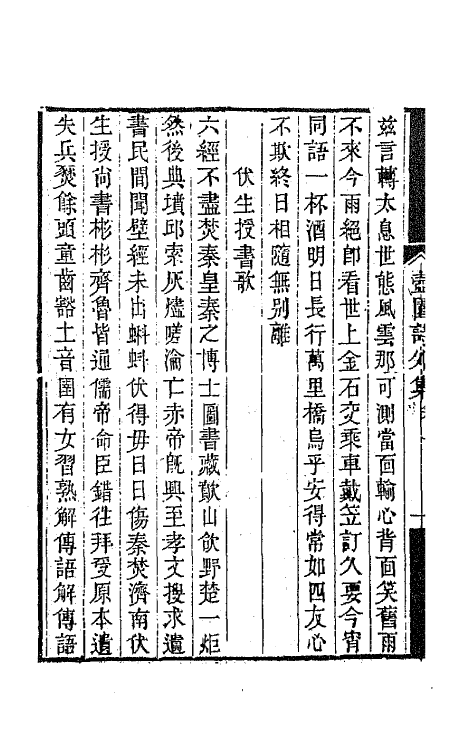 茲言轉太息世態風雲那可測當面輸心背面笑舊雨
不來今雨絕卽看世上金石交乘車戴笠訂久要今宵
同語一杯酒明日長行萬里橋烏乎安得常如四友心
不欺終日相隨無別離
伏生授書歌
六經不盡焚秦皇秦之博士圖書藏歐山飲野楚一炬
然後典墳邱索灰燼嗟淪亡赤帝旣興至孝文搜求遺
書民間聞壁經未出蝌蚪伏得毋日日傷秦焚濟南伏
生授尙書彬彬齊魯皆通儒帝命臣錯往拜受原本遺
失兵燹餘頭童齒豁土音圄有女習熟解傳語解傳語